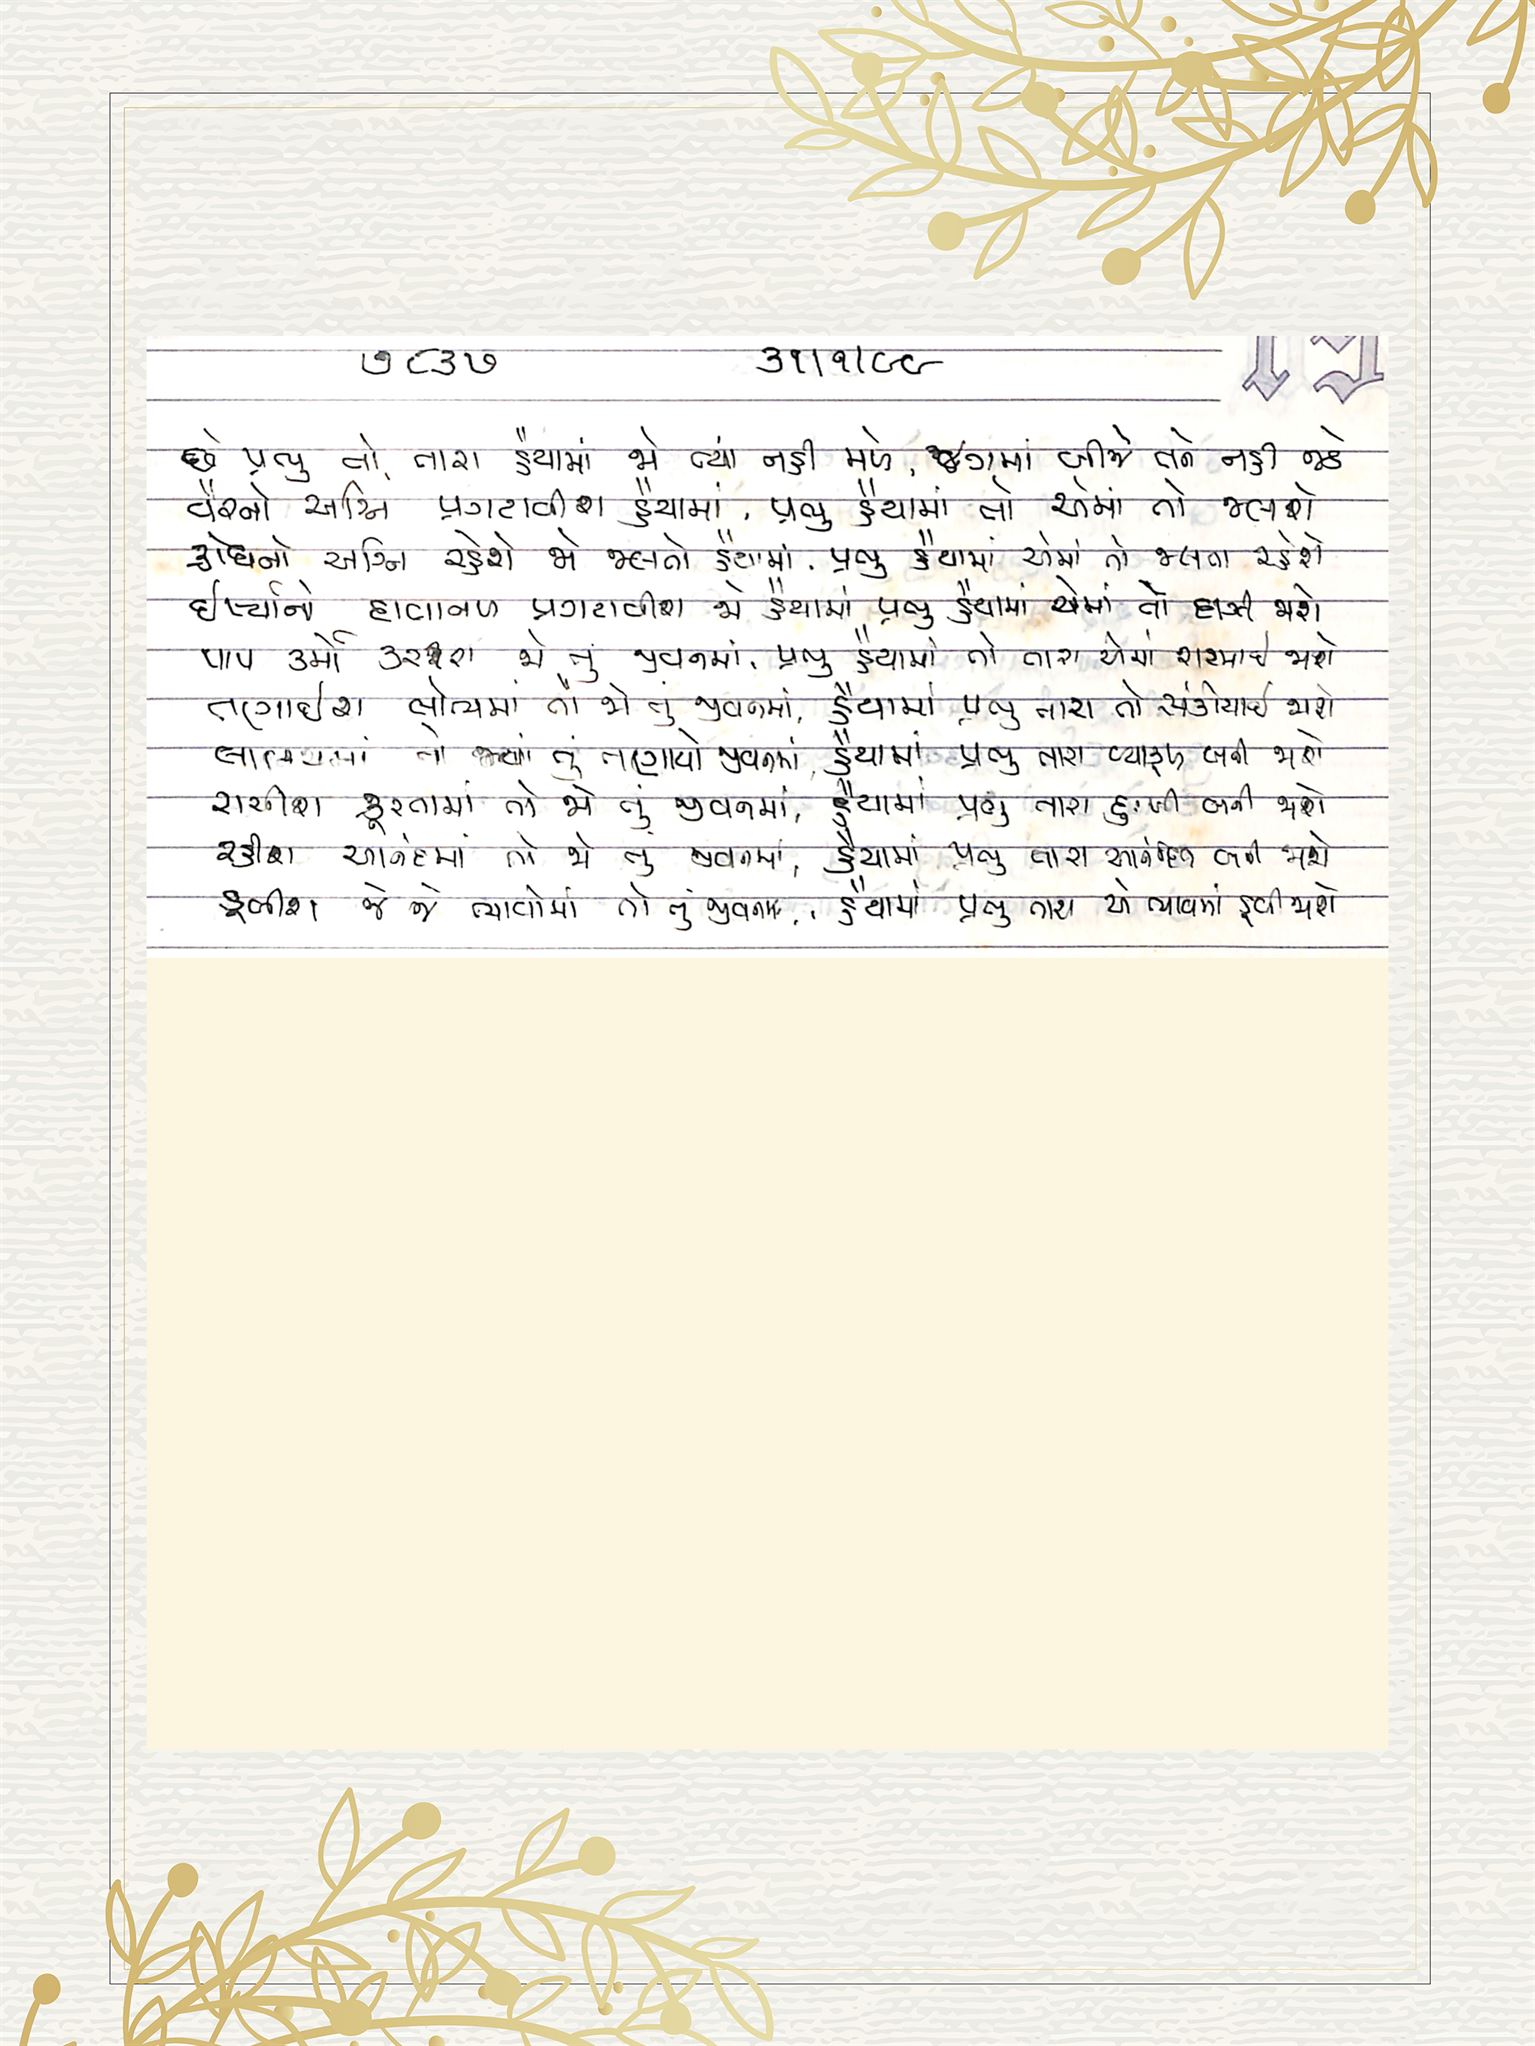 ૭૮૩૭ ૩૧/૧/૯૯
છે પ્રભુ તો, તારા હૈયામાં જો ત્યાં નહી મળે, જગમાં બીજે તને નહી જડે
વૈરનો અગ્નિ પ્રગટાવીશ હૈયામાં, પ્રભુ હૈયામાં તો એમાં તો જલશે
ક્રોધનો અગ્નિ રહેશે જો જલતો હૈયામાં, પ્રભુ હૈયામાં એમાં તો જલતા રહેશે
ઈર્ષ્યાનો દાવાનળ પ્રગટાવીશ જો હૈયામાં પ્રભુ હૈયામાં એમાં તો દાઝી જાશે
પાપ કર્મો કરીશ જો તું જીવનમાં, પ્રભુ હૈયામાં તો તારા એમાં શરમાઈ જાશે
તણાઈશ લોભમાં તો જો તું જીવનમાં, હૈયામાં પ્રભુ તારા તો સંકોચાઈ જાશે
લાલચમાં તો જ્યાં તું તણાયો જીવનમાં, હૈયામાં પ્રભુ તારા વ્યાકુળ બની જાશે
રાચીશ ક્રૂરતામાં તો જો તું જીવનમાં, હૈયામાં પ્રભુ તારા દુઃખી બની જાશે
રહીશ આનંદમાં તો જો તું જીવનમાં, હૈયામાં પ્રભુ તારા આનંદિત બની જાશે
ડૂબીશ જે જે ભાવોમાં તો તું જીવનમાં, હૈયામાં પ્રભુ તારા એ ભાવમાં ડૂબી જાશે